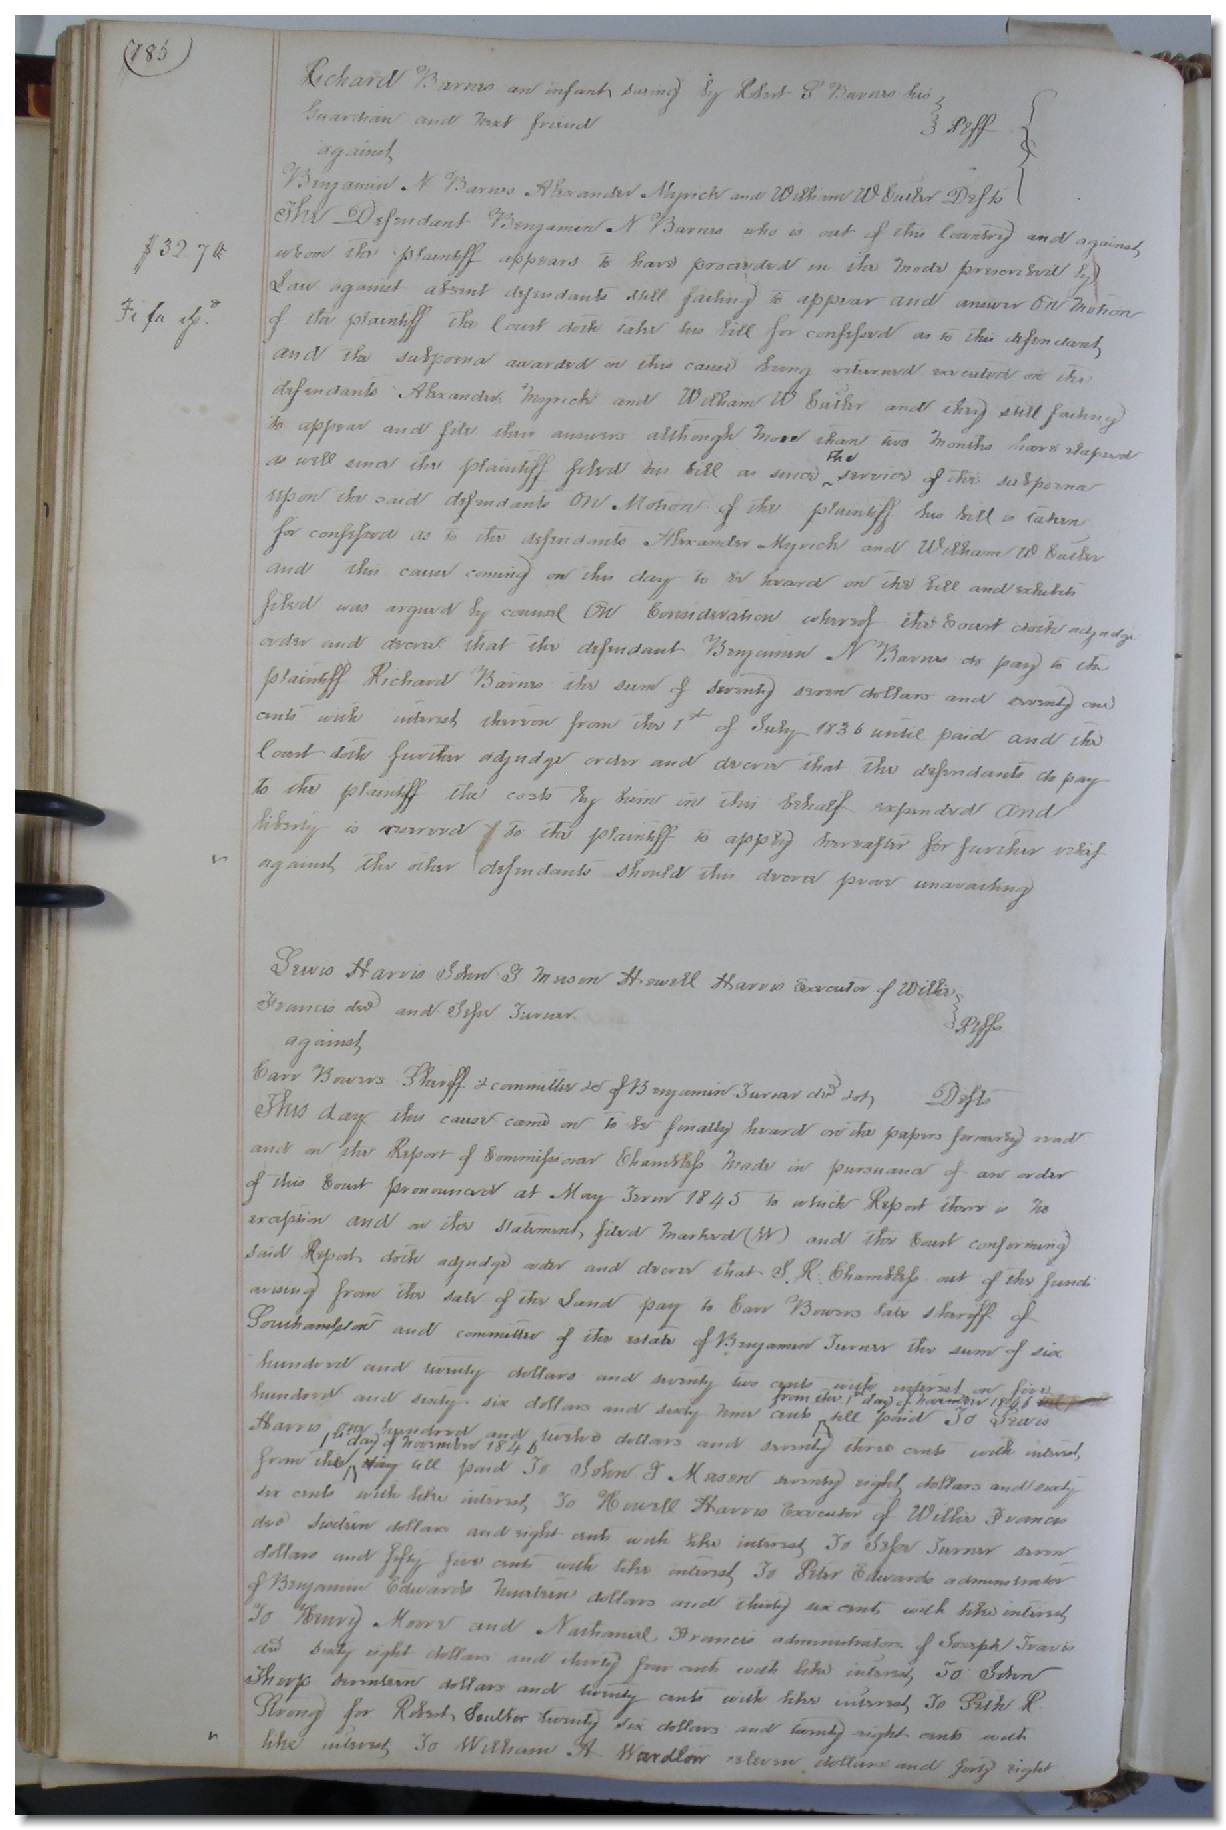 185
Richard Barnes an infant suing by Robert S Barnes his
Guardian and next friend
Plff
against
Benjamin N Barnes Alexander Myrick and William W Butler Defts
$32.74
The Defendant Benjamin N Barnes who is out of this Country and against
whom the plaintiff appears to have proceeded in the mode prescribed by
Law against absent defendants still failing to appear and answer On Motion
Fi fa
of the plaintiff the Court doth take his bill for confessed as to this defendant
and the subpoena awarded in this cause being returned executed on the
defendants Alexander Myrick and William W Butler and they still failing
to appear and file their answers although more than two months have elapsed
as well since the plaintiff filed his bill as since the service of the subpoena
upon the said defendants On Motion of the plaintiff his bill is taken
for confessed as to the defendants Alexander Myrick and William W Butler
and this cause coming on this day to be heard on the bill and exhibits
filed was argued by counsel On Consideration whereof the Court doth adjudge
order and decree that the defendant Benjamin N Barnes do pay to the
plaintiff Richard Barnes the sum of seventy seven dollars and seventy one
cents with interest thereon from the 1st of July 1836 until paid and the
Court doth further adjudge order and decree that the defendants do pay
to the plaintiff the costs by him in this behalf expended and
liberty is reserved to the plaintiff to apply hereafter for further relief
against the other defendants should this decree prove unavailing
Lewis Harris John T Mason Howell Harris Executor of Willie
Francis decd and Jesse Turner
Plffs
against
Carr Bowers Sheriff & committee &c of Benjamin Turner decd &ot Defts
This day this cause came on to be finally heard on the papers formerly read
and on the Report of Commissioner Chambliss made in pursuance of an order
of this Court pronounced at May Term 1845 to which Report there is no
exception and on the statement filed marked (W) and the Court confirming
said Report doth adjudge order and decree that S. K. Chambliss out of the funds
arising from the sale of the Land pay to Carr Bowers late sheriff of
Southampton and committee of the estate of Benjamin Turner the sum of six
hundred and twenty dollars and seventy two cents with interest on five
hundred and sixty six dollars and sixty nine cents from the 1st day of November 1846 till paid To Lewis
Harris one hundred and twelve dollars and seventy three cents with interest
from the 1st day of November 1846 till paid To John T Mason seventy eight dollars and sixty
six cents with like interest To Howell Harris Executor of Willie Francis
decd sixteen dollars and eight cents with like interest To Jesse Turner seven
dollars and fifty five cents with like interest To Peter Edwards administrator
of Benjamin Edwards nineteen dollars and thirty six cents with like interest
To Henry Moore and Nathaniel Francis administrators of Joseph Travis
decd sixty eight dollars and thirty four cents with like interest To John
Tharp seventeen dollars and twenty cents with like interest To Seth R.
Strong for Robert Soulter twenty six dollars and twenty eight cents with
like interest To William A Wardlow eleven dollars and forty eight